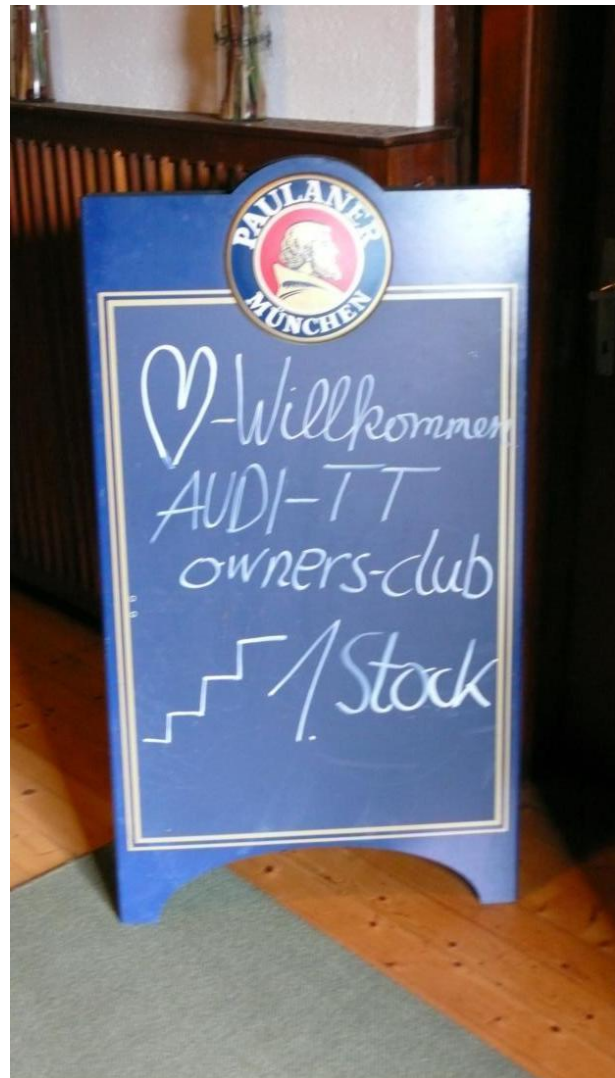 PAULANER
MÜNCHEN
♡-Willkommen
AUDI-TT
owners-club
1. Stock